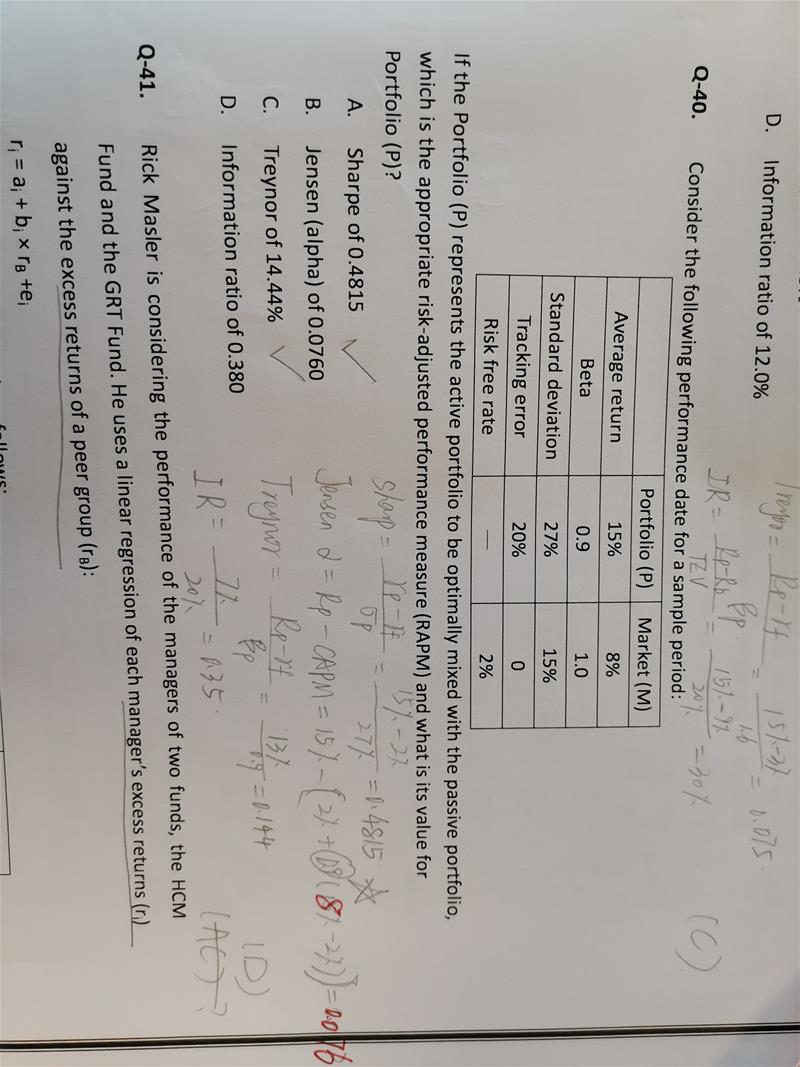 D. Information ratio of 12.0%
Treynor = Rp-rf / βp = 15%-3% / 1.6 = 0.075.
IR = Rp-Rb / TEV = 15%-9% / 20% = 30%
(C)
Q-40. Consider the following performance date for a sample period:
Portfolio (P) Market (M)
Average return 15% 8%
Beta 0.9 1.0
Standard deviation 27% 15%
Tracking error 20% 0
Risk free rate — 2%
If the Portfolio (P) represents the active portfolio to be optimally mixed with the passive portfolio,
which is the appropriate risk-adjusted performance measure (RAPM) and what is its value for
Portfolio (P)?
A. Sharpe of 0.4815
Sharp = rp-rf / σp = 15%-2% / 27% = 0.4815
B. Jensen (alpha) of 0.0760
Jensen α = Rp - CAPM = 15% - (2% + 0.9(8%-2%)) = 0.076
C. Treynor of 14.44%
Treynor = Rp-rf / βp = 13% / 0.9 = 0.144
D. Information ratio of 0.380
IR = 7% / 20% = 0.35.
(D)
(AC)?
Q-41. Rick Masler is considering the performance of the managers of two funds, the HCM
Fund and the GRT Fund. He uses a linear regression of each manager's excess returns (ri)
against the excess returns of a peer group (rB):
ri = ai + bi × rB +ei